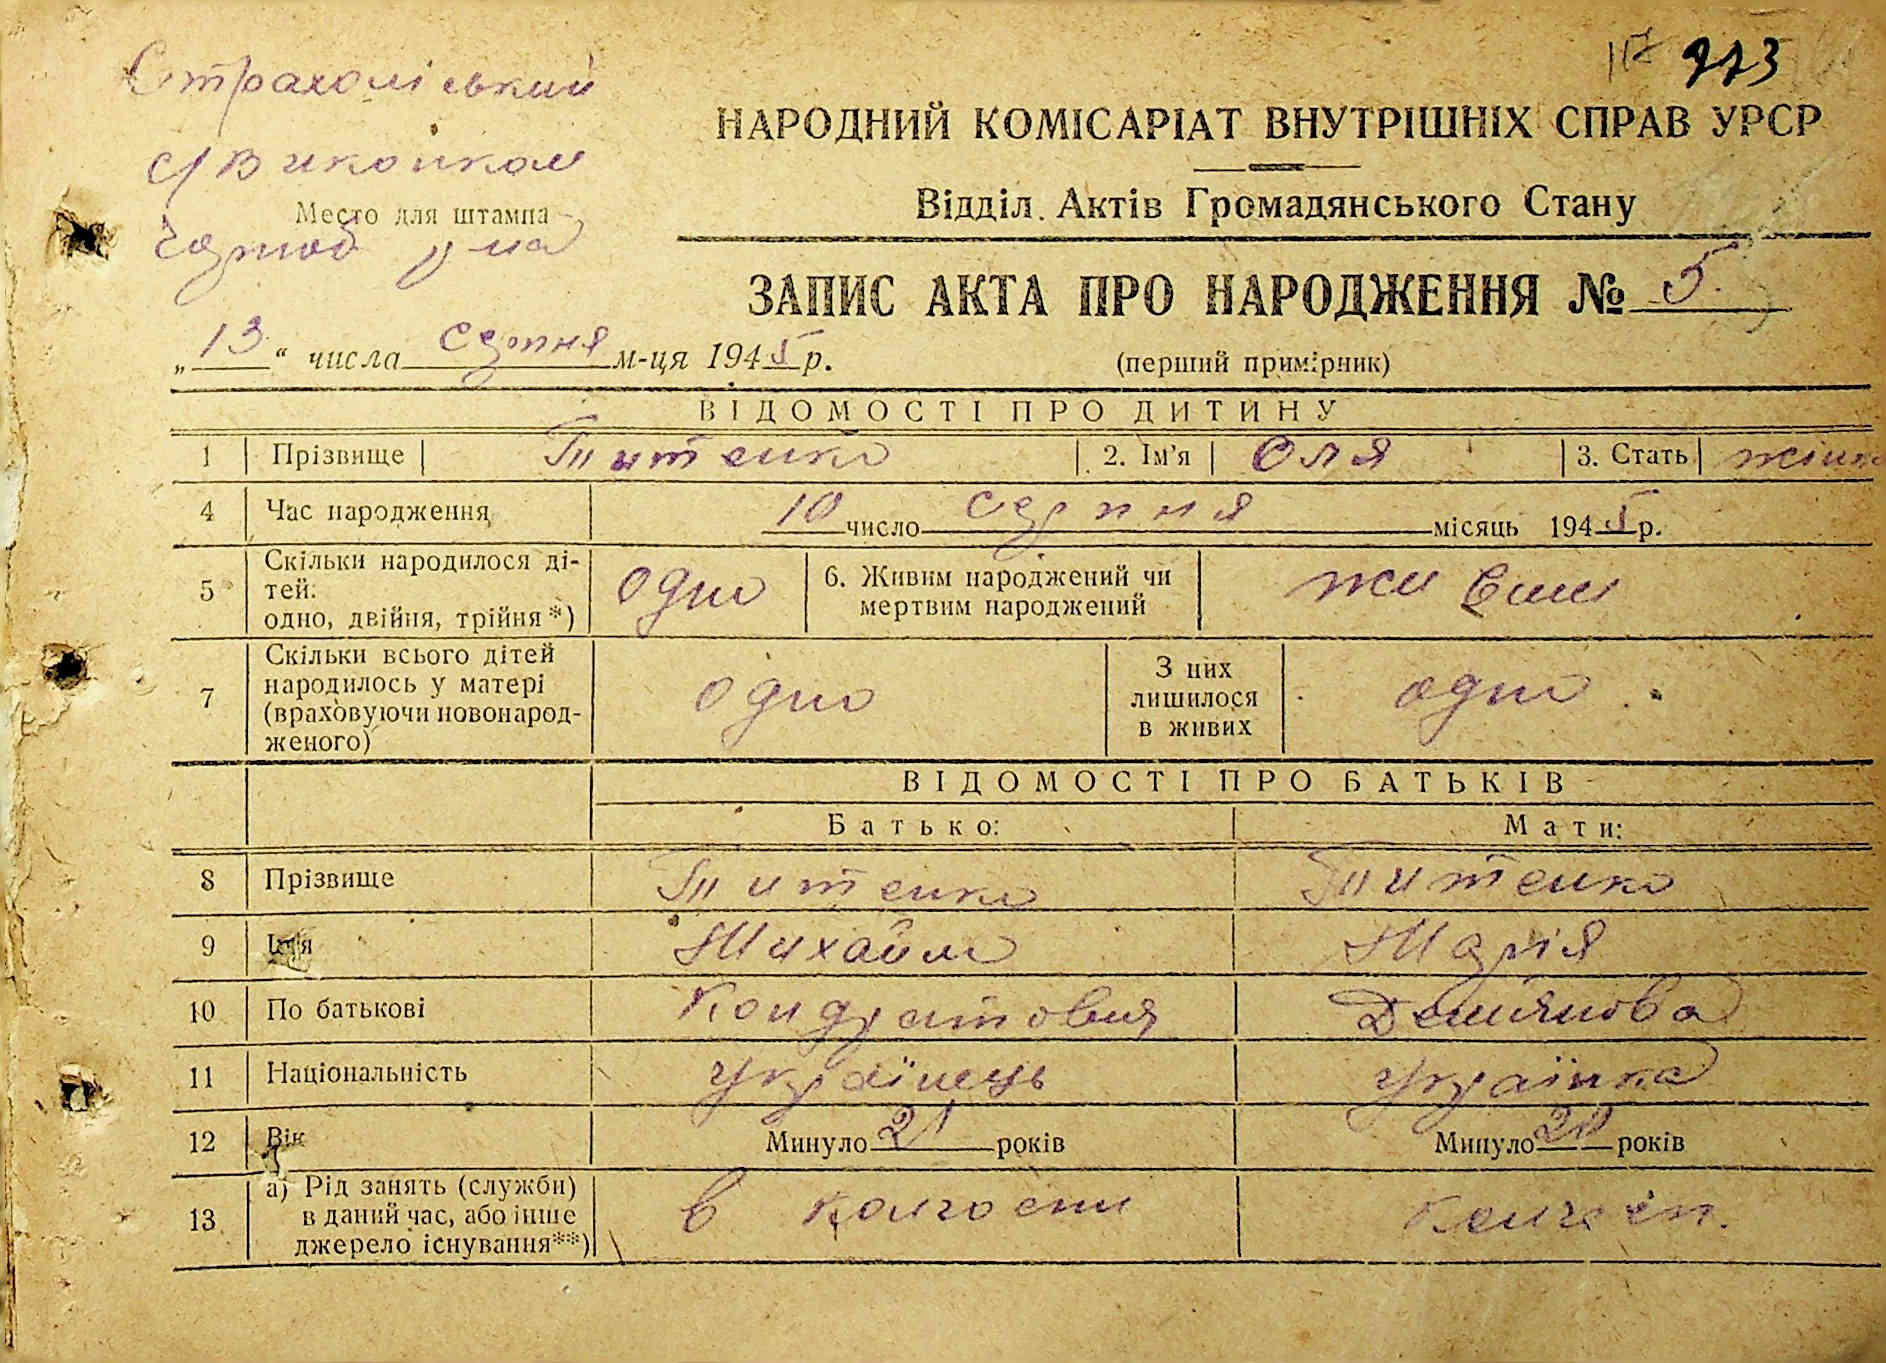 117 223
Страхоліський
с/виконком
Место для штампа
Чорноб р-на
НАРОДНИЙ КОМІСАРІАТ ВНУТРІШНІХ СПРАВ УРСР
Відділ Актів Громадянського Стану
ЗАПИС АКТА ПРО НАРОДЖЕННЯ № 5.
„13“ числа серпня м-ця 1945 р.
(перший примірник)
ВІДОМОСТІ ПРО ДИТИНУ
1 Прізвище Титенко 2. Ім’я Оля 3. Стать жіно
4 Час народження 10 число серпня місяць 1945 р.
5 Скільки народилося ді-
тей:
одно, двійня, трійня*) одно
6. Живим народжений чи
мертвим народжений живим
7 Скільки всього дітей
народилось у матері
(враховуючи новонарод-
женого) одно
З них
лишилося
в живих одно
ВІДОМОСТІ ПРО БАТЬКІВ
Батько: Мати:
8 Прізвище Титенко Титенко
9 Ім’я Михайло Марія
10 По батькові Кондратович Демянова
11 Національність українець українка
12 Вік Минуло 21 років Минуло 20 років
13 а) Рід занять (служби)
в даний час, або інше
джерело існування**) в колгоспи колгосп.